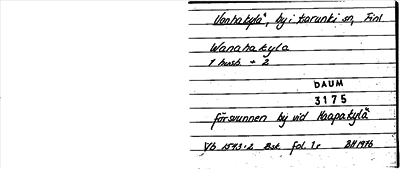 Vanhakylä, by i Karunki sn, Finl
Wanahakyla
1 husb. + 2
DAUM
3175
försvunnen by vid Haapakylä
Vb 1543:2 Bsk fol. 1r BH 1976